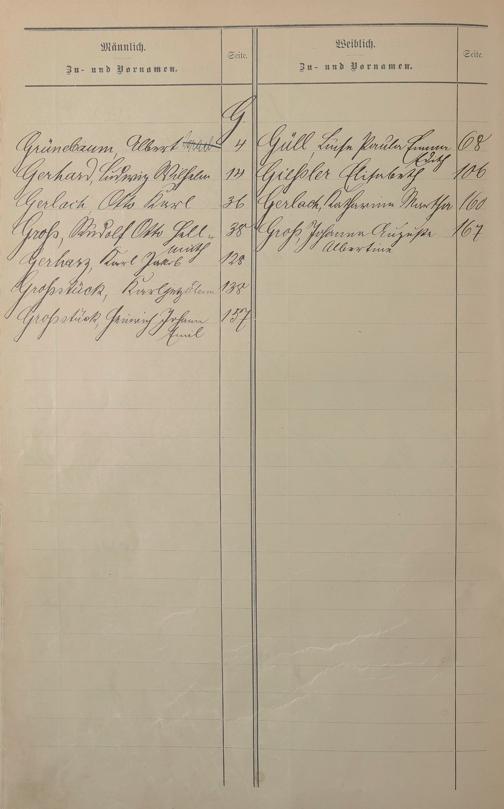 Männlich.
Zu- und Vornamen.
Seite.
Weiblich.
Zu- und Vornamen.
Seite.
G
Grünebaum, Albert 4
Gerhard, Ludwig Wilhelm 14
Gerlach Otto Karl 36
Groß, Rudolf Otto Hell- 38
muth
Gerharz, Karl Jakob 128
Großstück, Karl 138
Großstück, Heinrich Johann 157
Emil
Güll, Luise Paula Emma 68
Ruth
Gießler Elisabeth 106
Gerlach, Katharina Martha 160
Groß, Johanna Auguste 167
Albertine